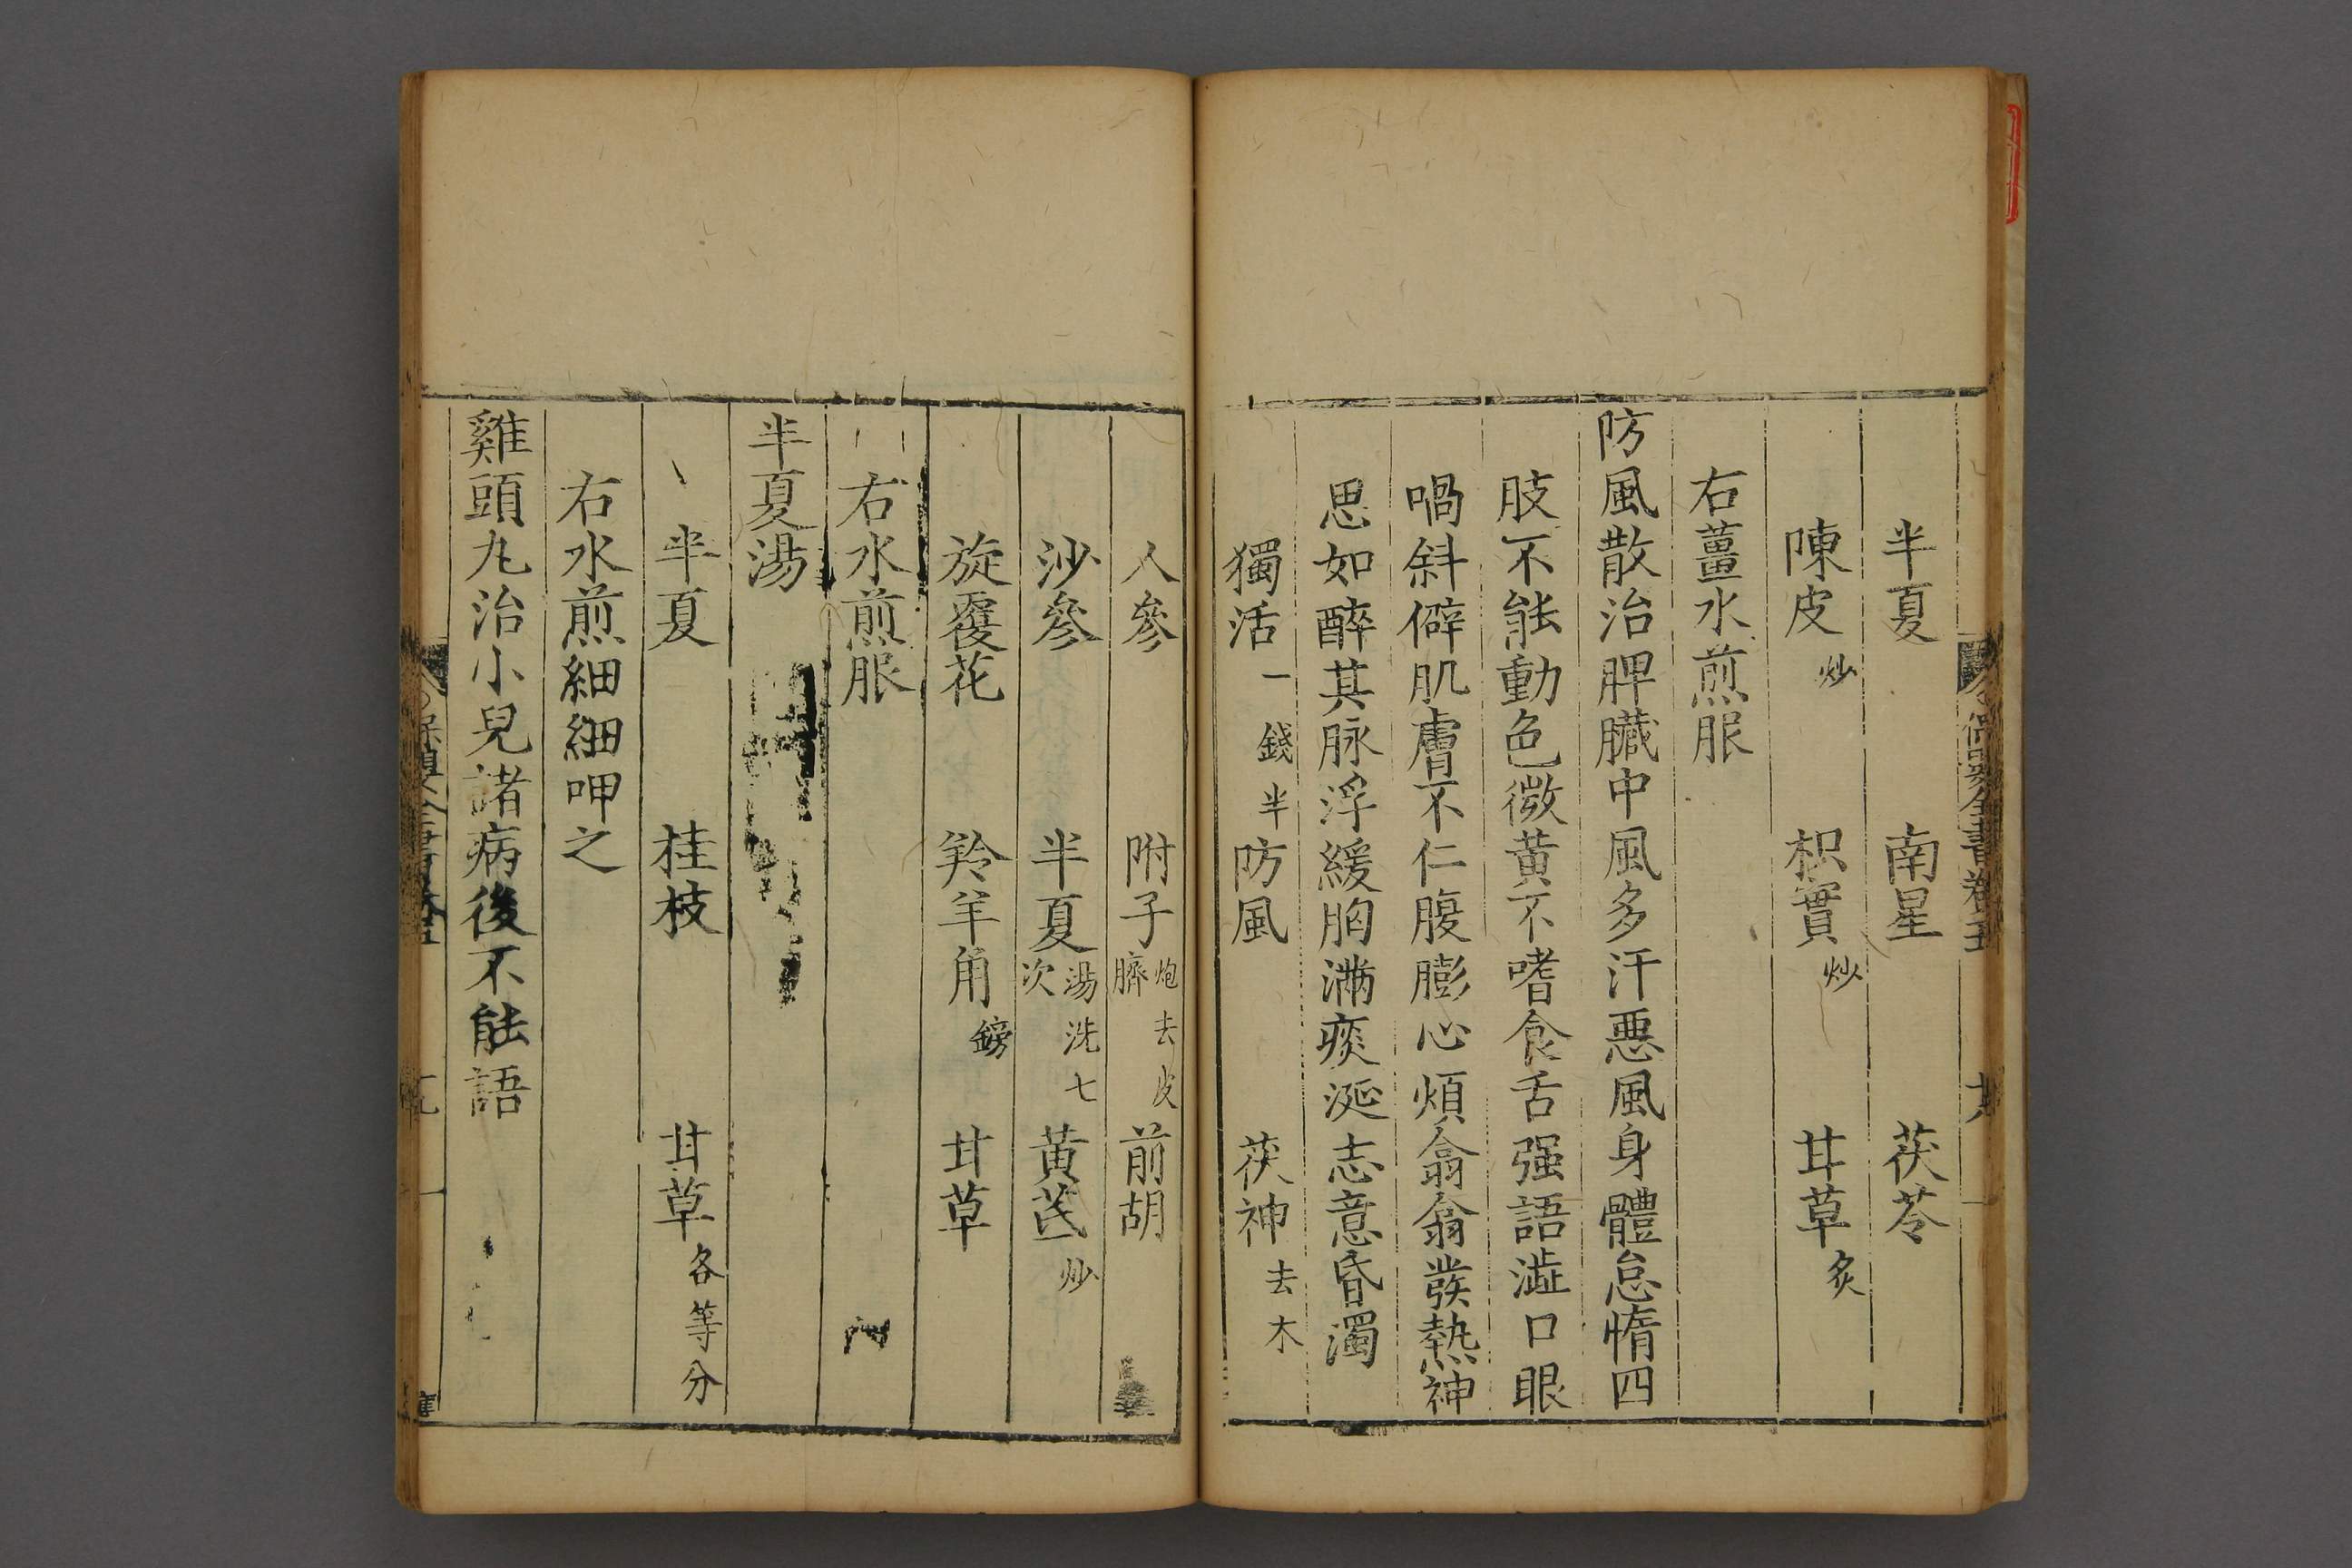 半夏　南星　茯苓
陳皮炒　枳實炒　甘草炙
右薑水煎服
防風散治脾臟中風多汗惡風身體怠惰四
肢不能動色微黃不嗜食舌强語澁口眼
喎斜僻肌膚不仁腹膨心煩翕翕發熱神
思如醉其脉浮緩胸滿痰涎志意昏濁
獨活一錢半　防風　茯神去木
人參　附子炮去皮臍　前胡
沙參　半夏湯洗七次　黃芪炒
旋覆花　羚羊角鎊　甘草
右水煎服
半夏湯
半夏　桂枝　甘草各等分
右水煎細細呷之
雞頭丸治小兒諸病後不能語